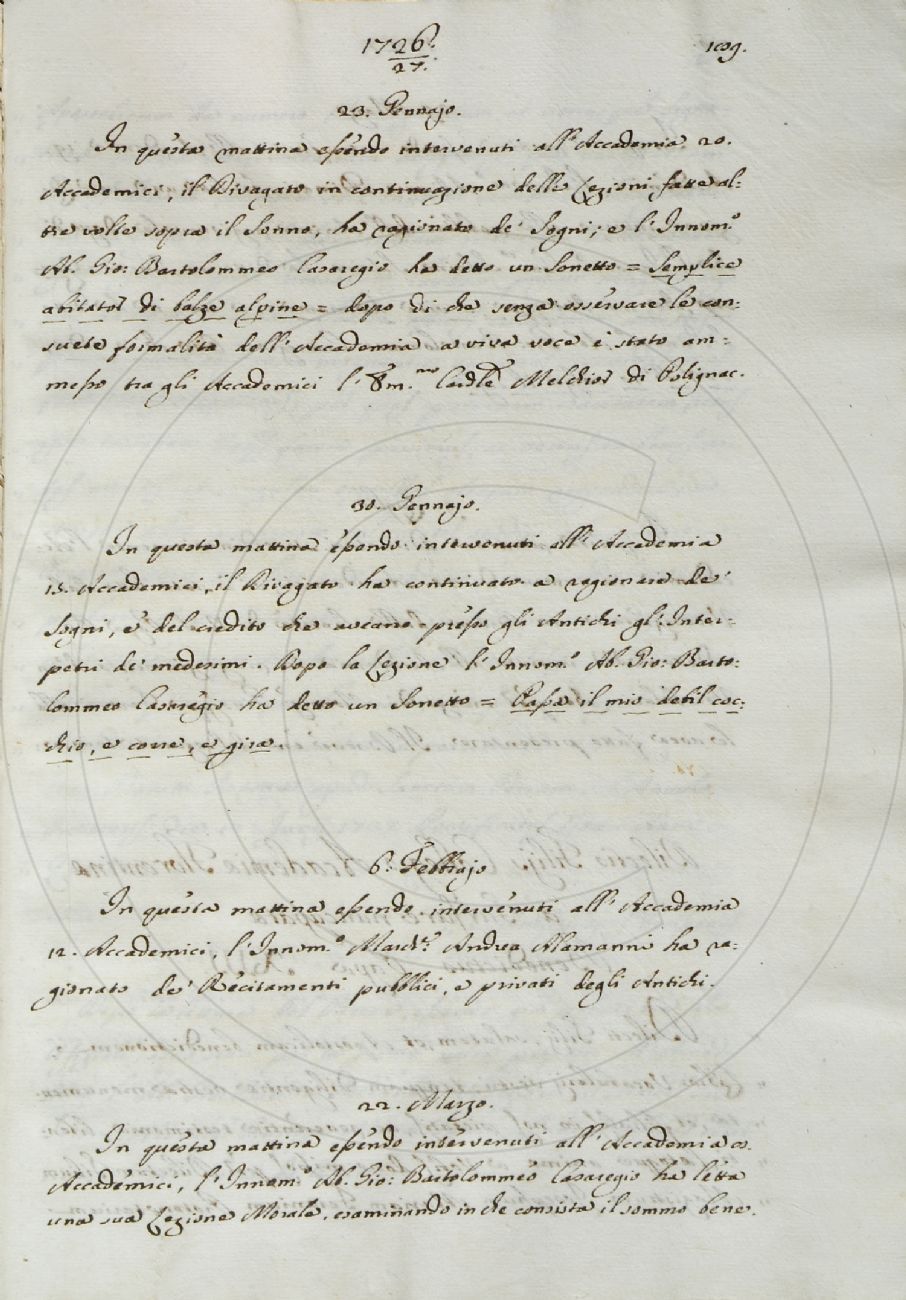 1726/27. 109.
23. Gennajo.
In questa mattina essendo intervenuti all'Accademia 20.
Accademici, il Divagato in continuazione delle Lezioni fatte al:
tre volte sopra il Sonno, ha ragionato de' Sogni; e l'Innom.º
Ab. Gio: Bartolommeo Casaregio ha detto un Sonetto = Semplice
abitator di balze alpine = dopo di che senza osservare le con:
suete formalità dell'Accademia a viva voce è stato am:
messo tra gli Accademici l'Em.mo Cardle Melchior di Polignac.
30. Gennajo.
In questa mattina essendo intervenuti all'Accademia
15. Accademici, il Divagato ha continuato a ragionare de'
Sogni, e del credito che aveano presso gli Antichi gl'Inter:
petri de' medesimi. Dopo la Lezione l'Innom.º Ab. Gio: Barto:
lommeo Casaregio ha detto un Sonetto = Passa il mio debil coc:
chio, e corre, e gira.
6. Febbrajo
In questa mattina essendo intervenuti all'Accademia
12. Accademici, l'Innom.º March.e Andrea Alamanni ha ra:
gionato de' Recitamenti pubblici, e privati degli Antichi.
22. Marzo.
In questa mattina essendo intervenuti all'Accademia
Accademici, l'Innom.º Ab. Gio: Bartolommeo Casaregio ha letta
una sua Lezione Morale, esaminando in che consista il sommo bene.